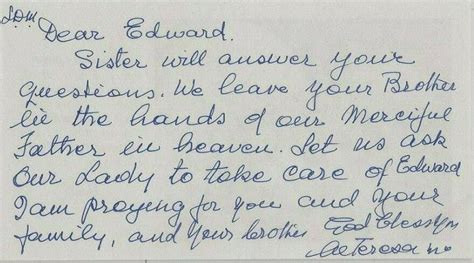 LDM
Dear Edward.
Sister will answer your
questions. We leave your Brother
in the hands of our Merciful
Father in heaven. Let us ask
Our Lady to take care of Edward
I am praying for you and your
family, and your brother God bless you
M Teresa mc